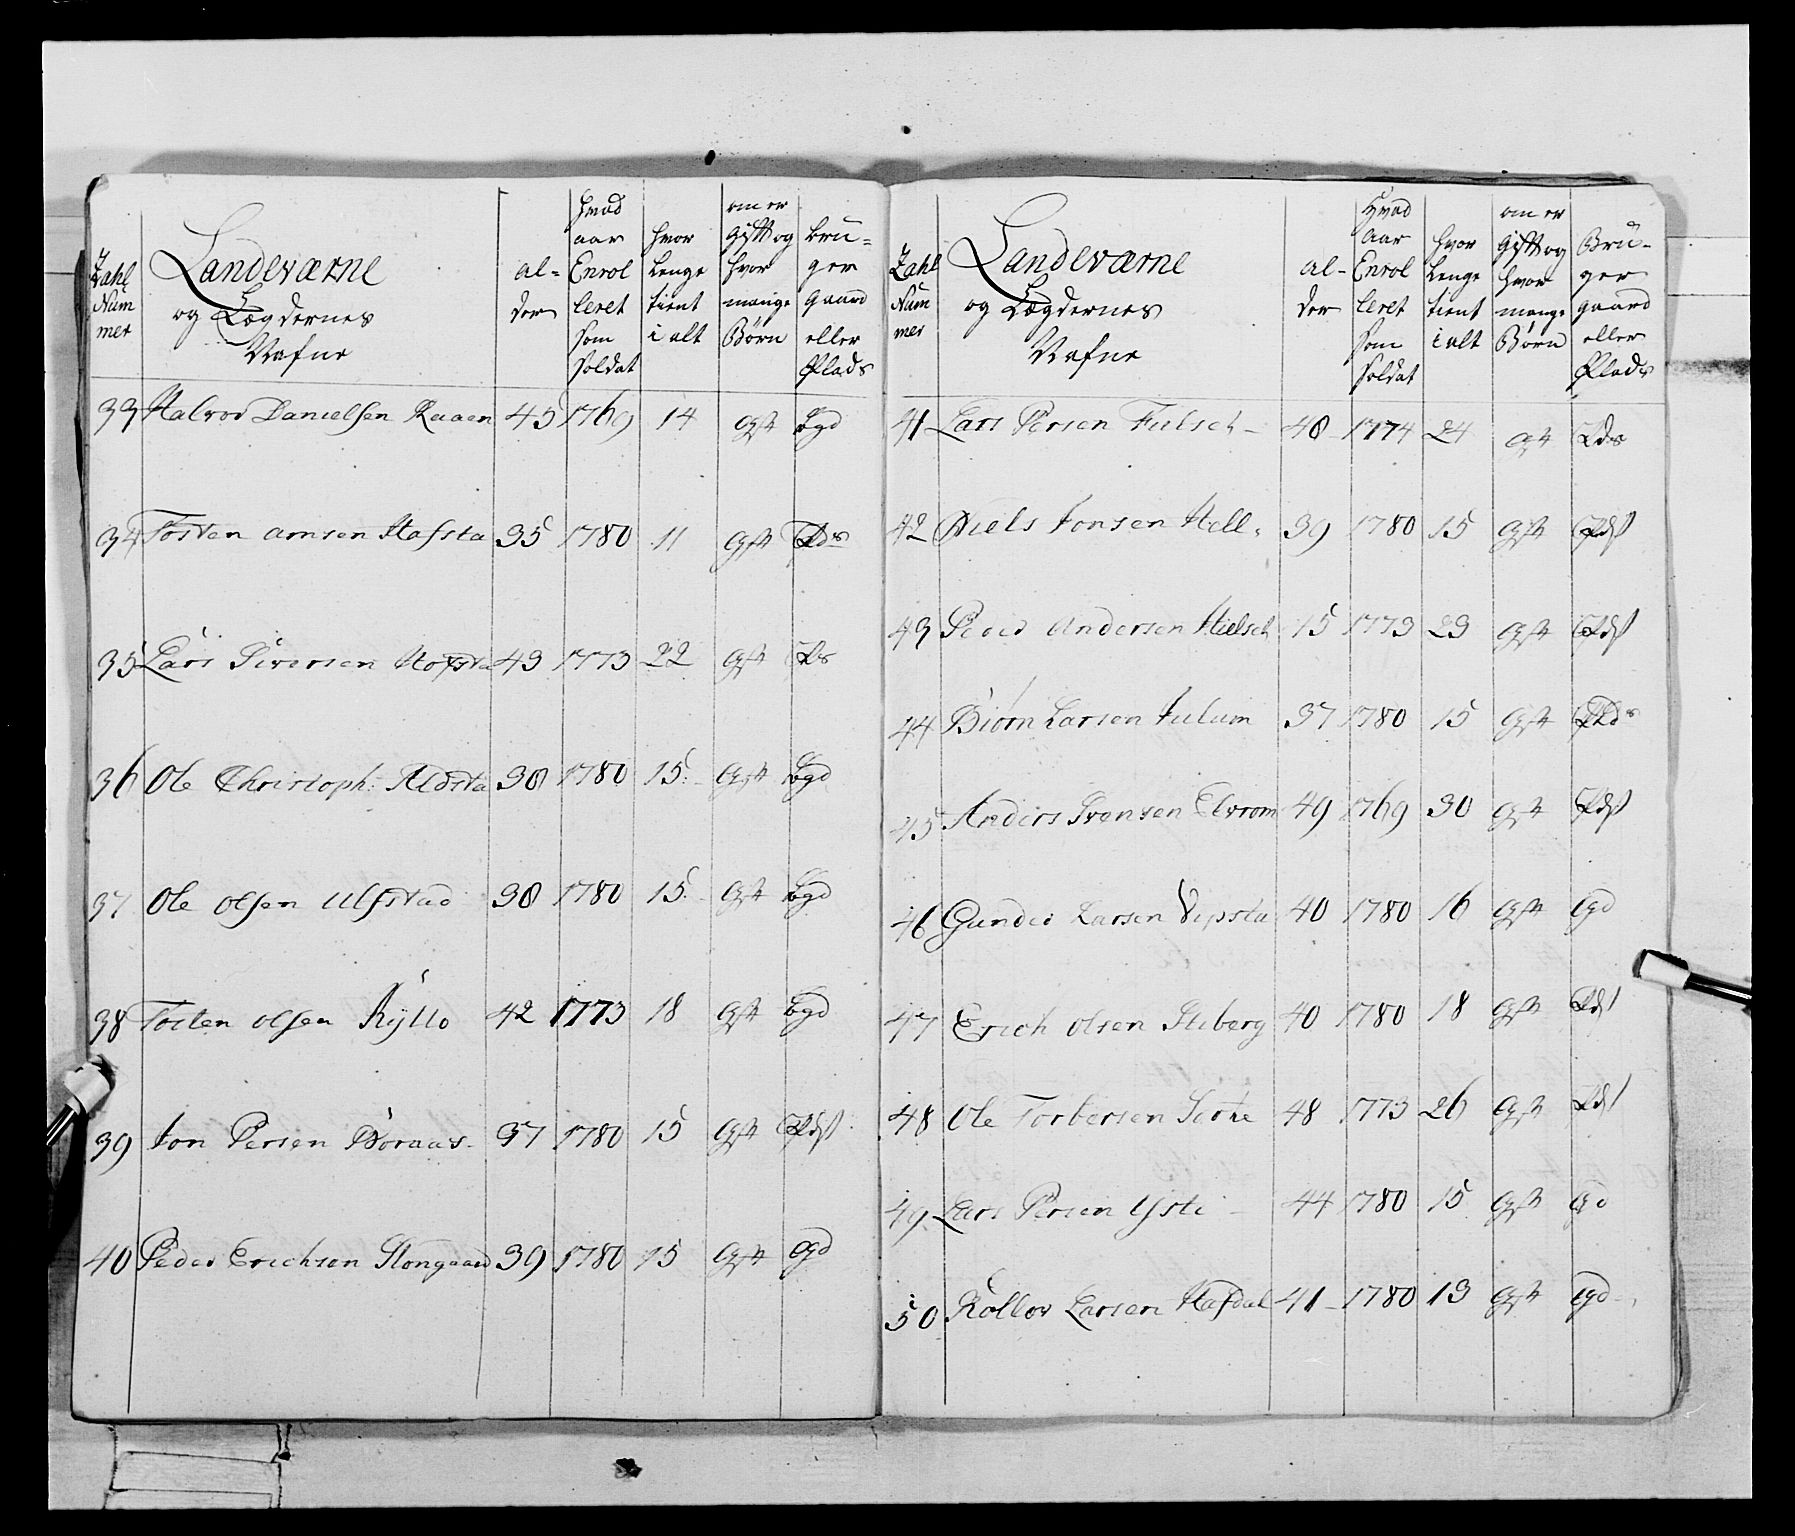 Zahl Num mer | Landeværne og Lægdernes Nafne | al= der | hvad aar Enrol leret som soldat | hvor lenge tient i alt | om er gift og hvor mange Børn | bru= ger gaard eller Plads
33 Halvor Danielsen Raaen 45 1769 14 gift bgd
34 Tosten amsen Hafsta 35 1780 11 gift Pds
35 Lars Siversen Hofsta 43 1773 22 gift Ps
36 Ole Christoph: Aldsta 38 1780 15: gift bgd
37 Ole olsen Ulfstad 38 1780 15: gift bgd
38 Tosten olsen Kyllo 42 1773 18 gift bgd
39 Jon Persen Boraas- 37 1780 15 gift Pds
40 Peder Erichsen Slongaard 39 1780 15 gift gd
Zahl Num mer | Landeværne og Lægdernes Nafne | al- der | Hvad aar Enrol leret som soldat | hvor lenge tient i alt | om er gift og hvor mange Børn | Bru- ger gaard eller Plads
41 Lars Persen Fulseh- 48 1774 24 gt Pds
42 Niels Jonsen Hell 39 1780 15 gift Pds
43 Peder Andersen Hielseh 15 1773 23 gift Pds
44 Biørn Larsen Julum 37 1780 15 gift Plds
45 Anders Svensen Elvrom 49 1769 30 gift Pds
46 Gunder Larsen Vepsta 40 1780 16 gift gd
47 Erich olsen Stiberg 40 1780 18 gift Pds
48 Ole Torbersen 48 1773 26 gift Pds
49 Lars Persen Yste - 44 1780 15 gift gd
50 Rollov Larsen Hafdal 41- 1780 13 gift gd-